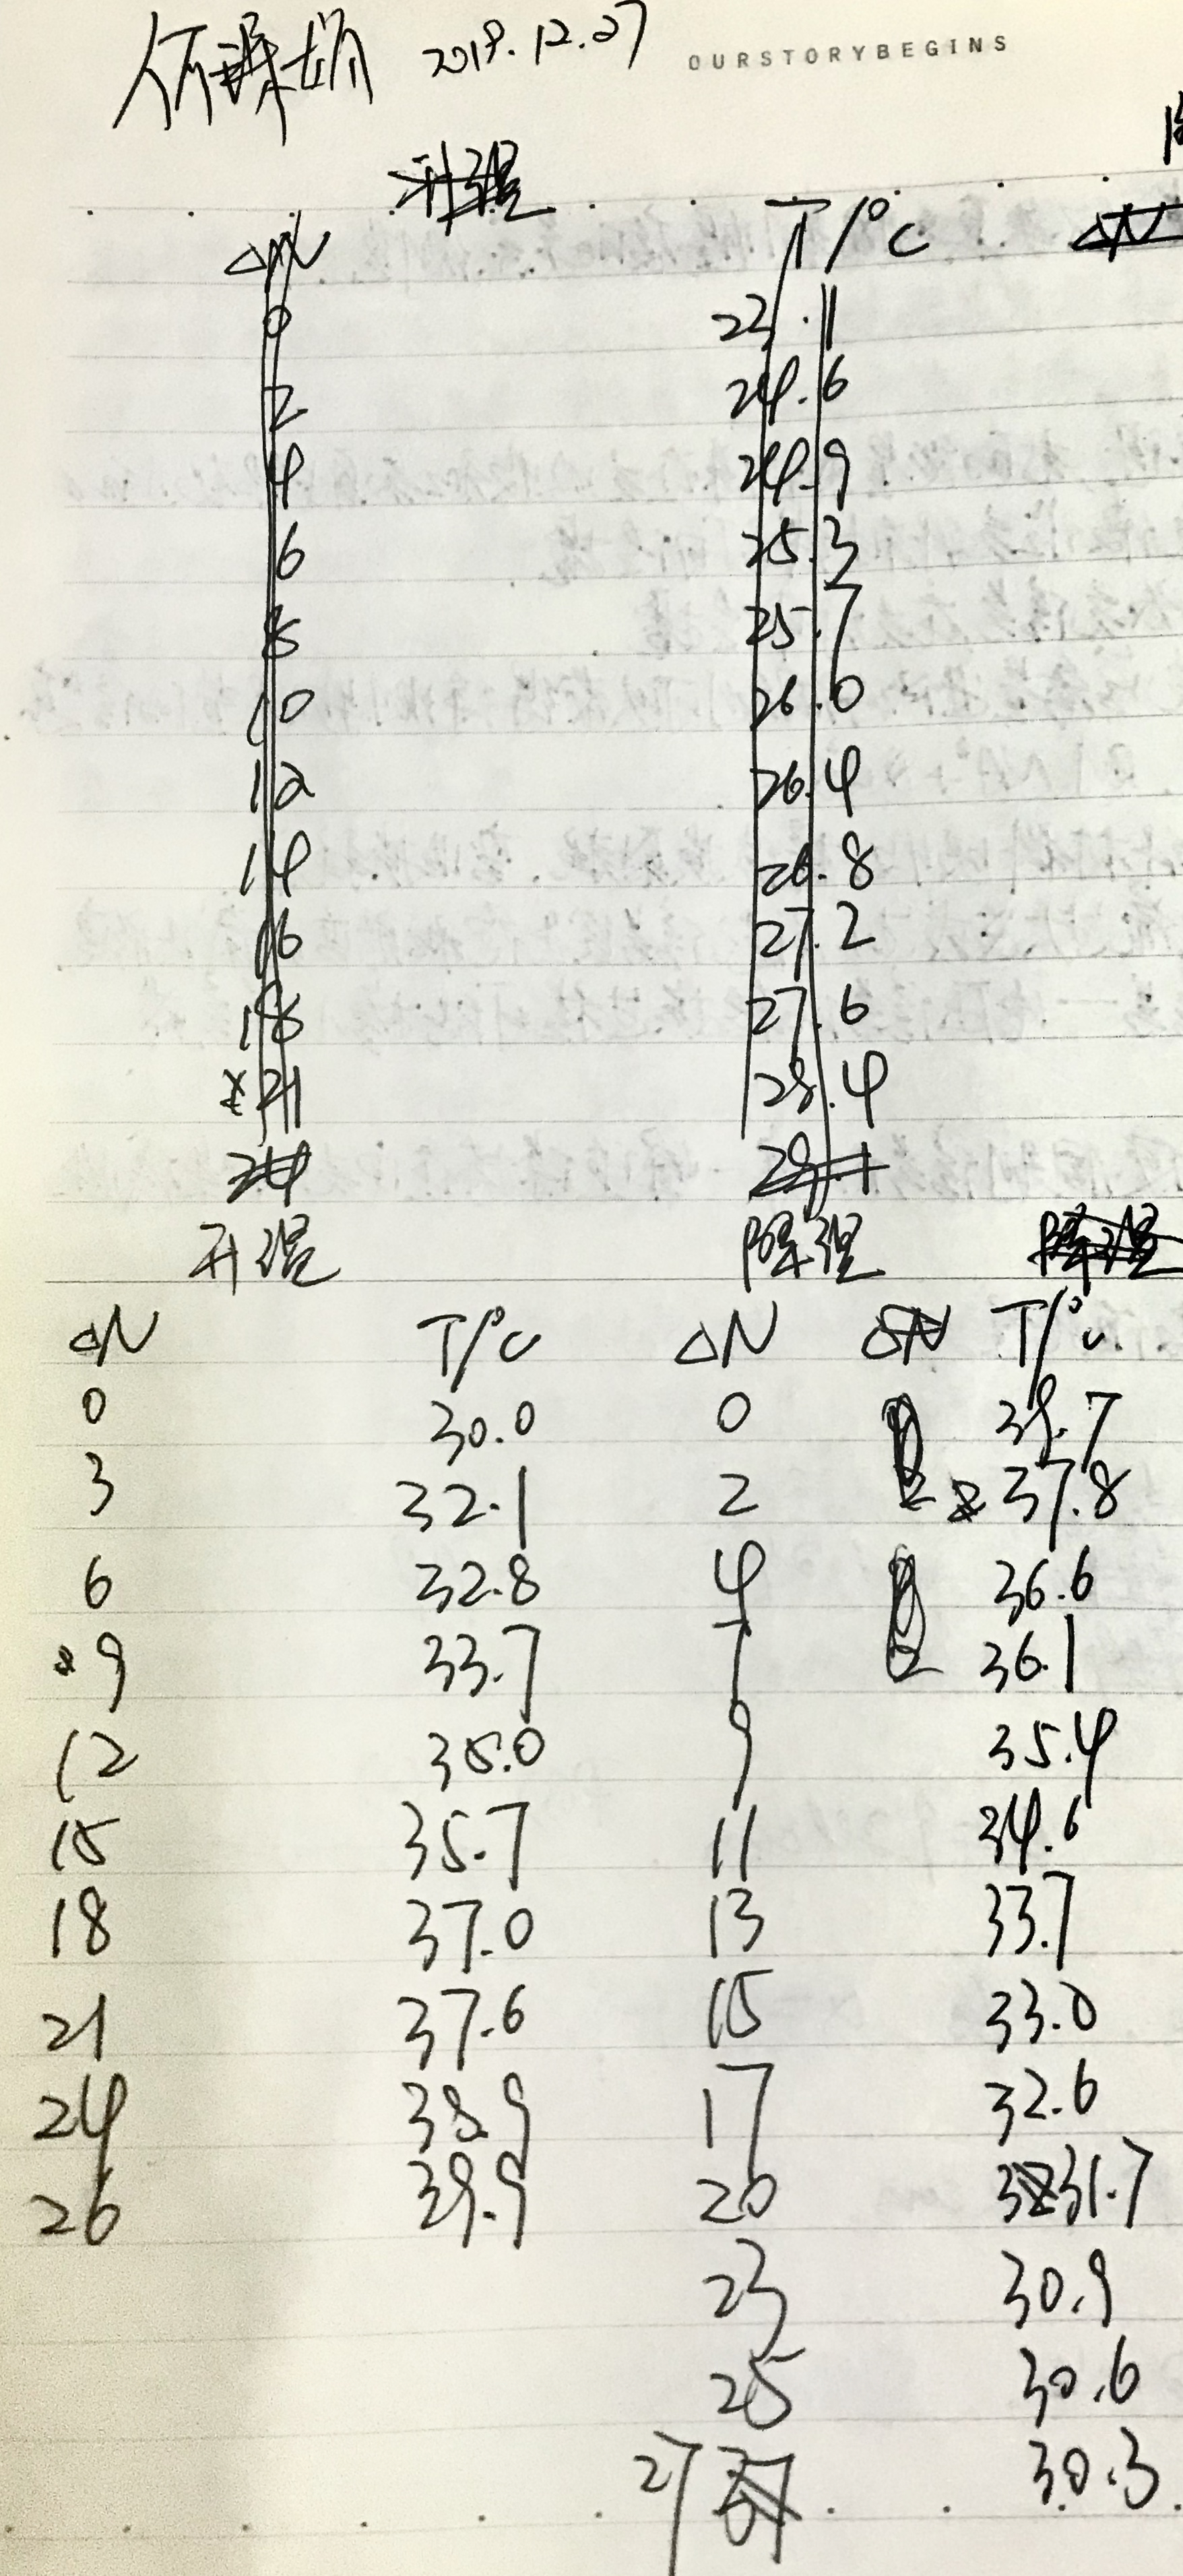 2019.12.27 OURSTORYBEGINS
升温
ΔN T/°C ΔN
0 23.11
2 24.6
4 24.9
6 25.3
8 25.7
10 26.0
12 26.4
14 26.8
16 27.2
18 27.6
21 28.4
24 29.1
升温 降温 降温
ΔN T/°C ΔN ΔN T/°C
0 30.0 0 39.7
3 32.1 2 37.8
6 32.8 4 36.6
9 33.7 7 36.1
12 35.0 9 35.4
15 35.7 11 34.6
18 37.0 13 33.7
21 37.6 15 33.0
24 38.9 17 32.6
26 39.9 20 31.7
23 30.9
25 30.6
27 30.3